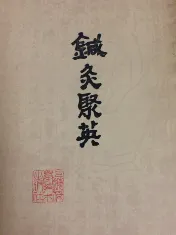 鍼灸聚英